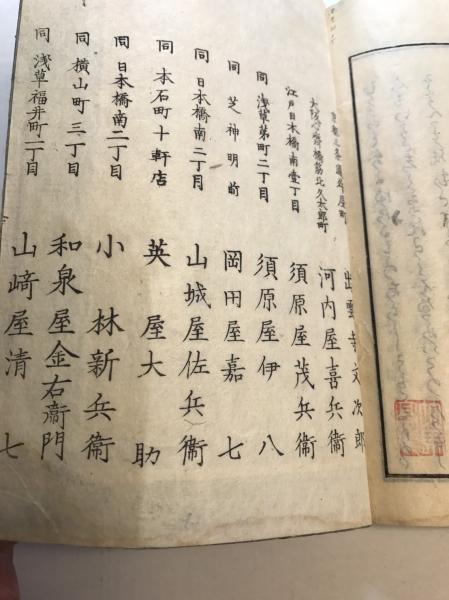 京都三条通舛屋町 出雲寺文次郎
大阪心斎橋筋北久太郎町 河内屋喜兵衞
江戸日本橋南壹丁目 須原屋茂兵衞
同 浅草茅町二丁目 須原屋伊八
同 芝神明前 岡田屋嘉七
同 日本橋南二丁目 山城屋佐兵衞
同 本石町十軒店 英屋大助
同 日本橋南二丁目 小林新兵衞
同 横山町三丁目 和泉屋金右衞門
同 浅草福井町一丁目 山﨑屋清七